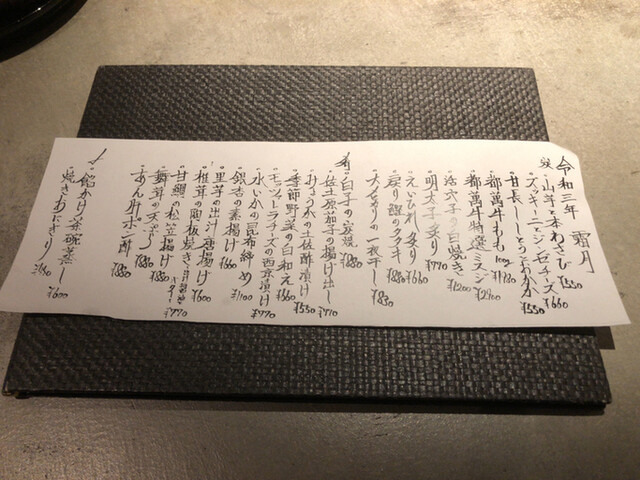 令和三年 霜月
炭
・山芋と本わさび ¥550
・ズッキーニとジンゼチーズ ¥660
・甘長ししとうとおかか ¥550
・都萬牛もも 100g ¥1760
・都萬牛特選ミスジ ¥2400
・活穴子の白焼き ¥1200
・明太子炙り ¥770
・えいひれ炙り ¥660
・戻り鰹のタタキ ¥880
・大とろりの一夜干し ¥830
・白子の炭焼 ¥880
肴
・佐土原茄子の揚げ出し ¥770
・おくらの土佐酢漬け ¥550
・季節野菜の白和え ¥660
・モッツァレラチーズの西京漬け ¥770
・水いかの昆布締め ¥1100
・銀杏の素揚げ
・里芋の出汁唐揚げ ¥600
・椎茸の陶板焼き バター ¥770
・甘鯛の松笠揚げ ¥880
・舞茸の天ぷら ¥880
・あん肝ポン酢 ¥880
〆
・餡かけ茶碗蒸し ¥600
・焼きおにぎり